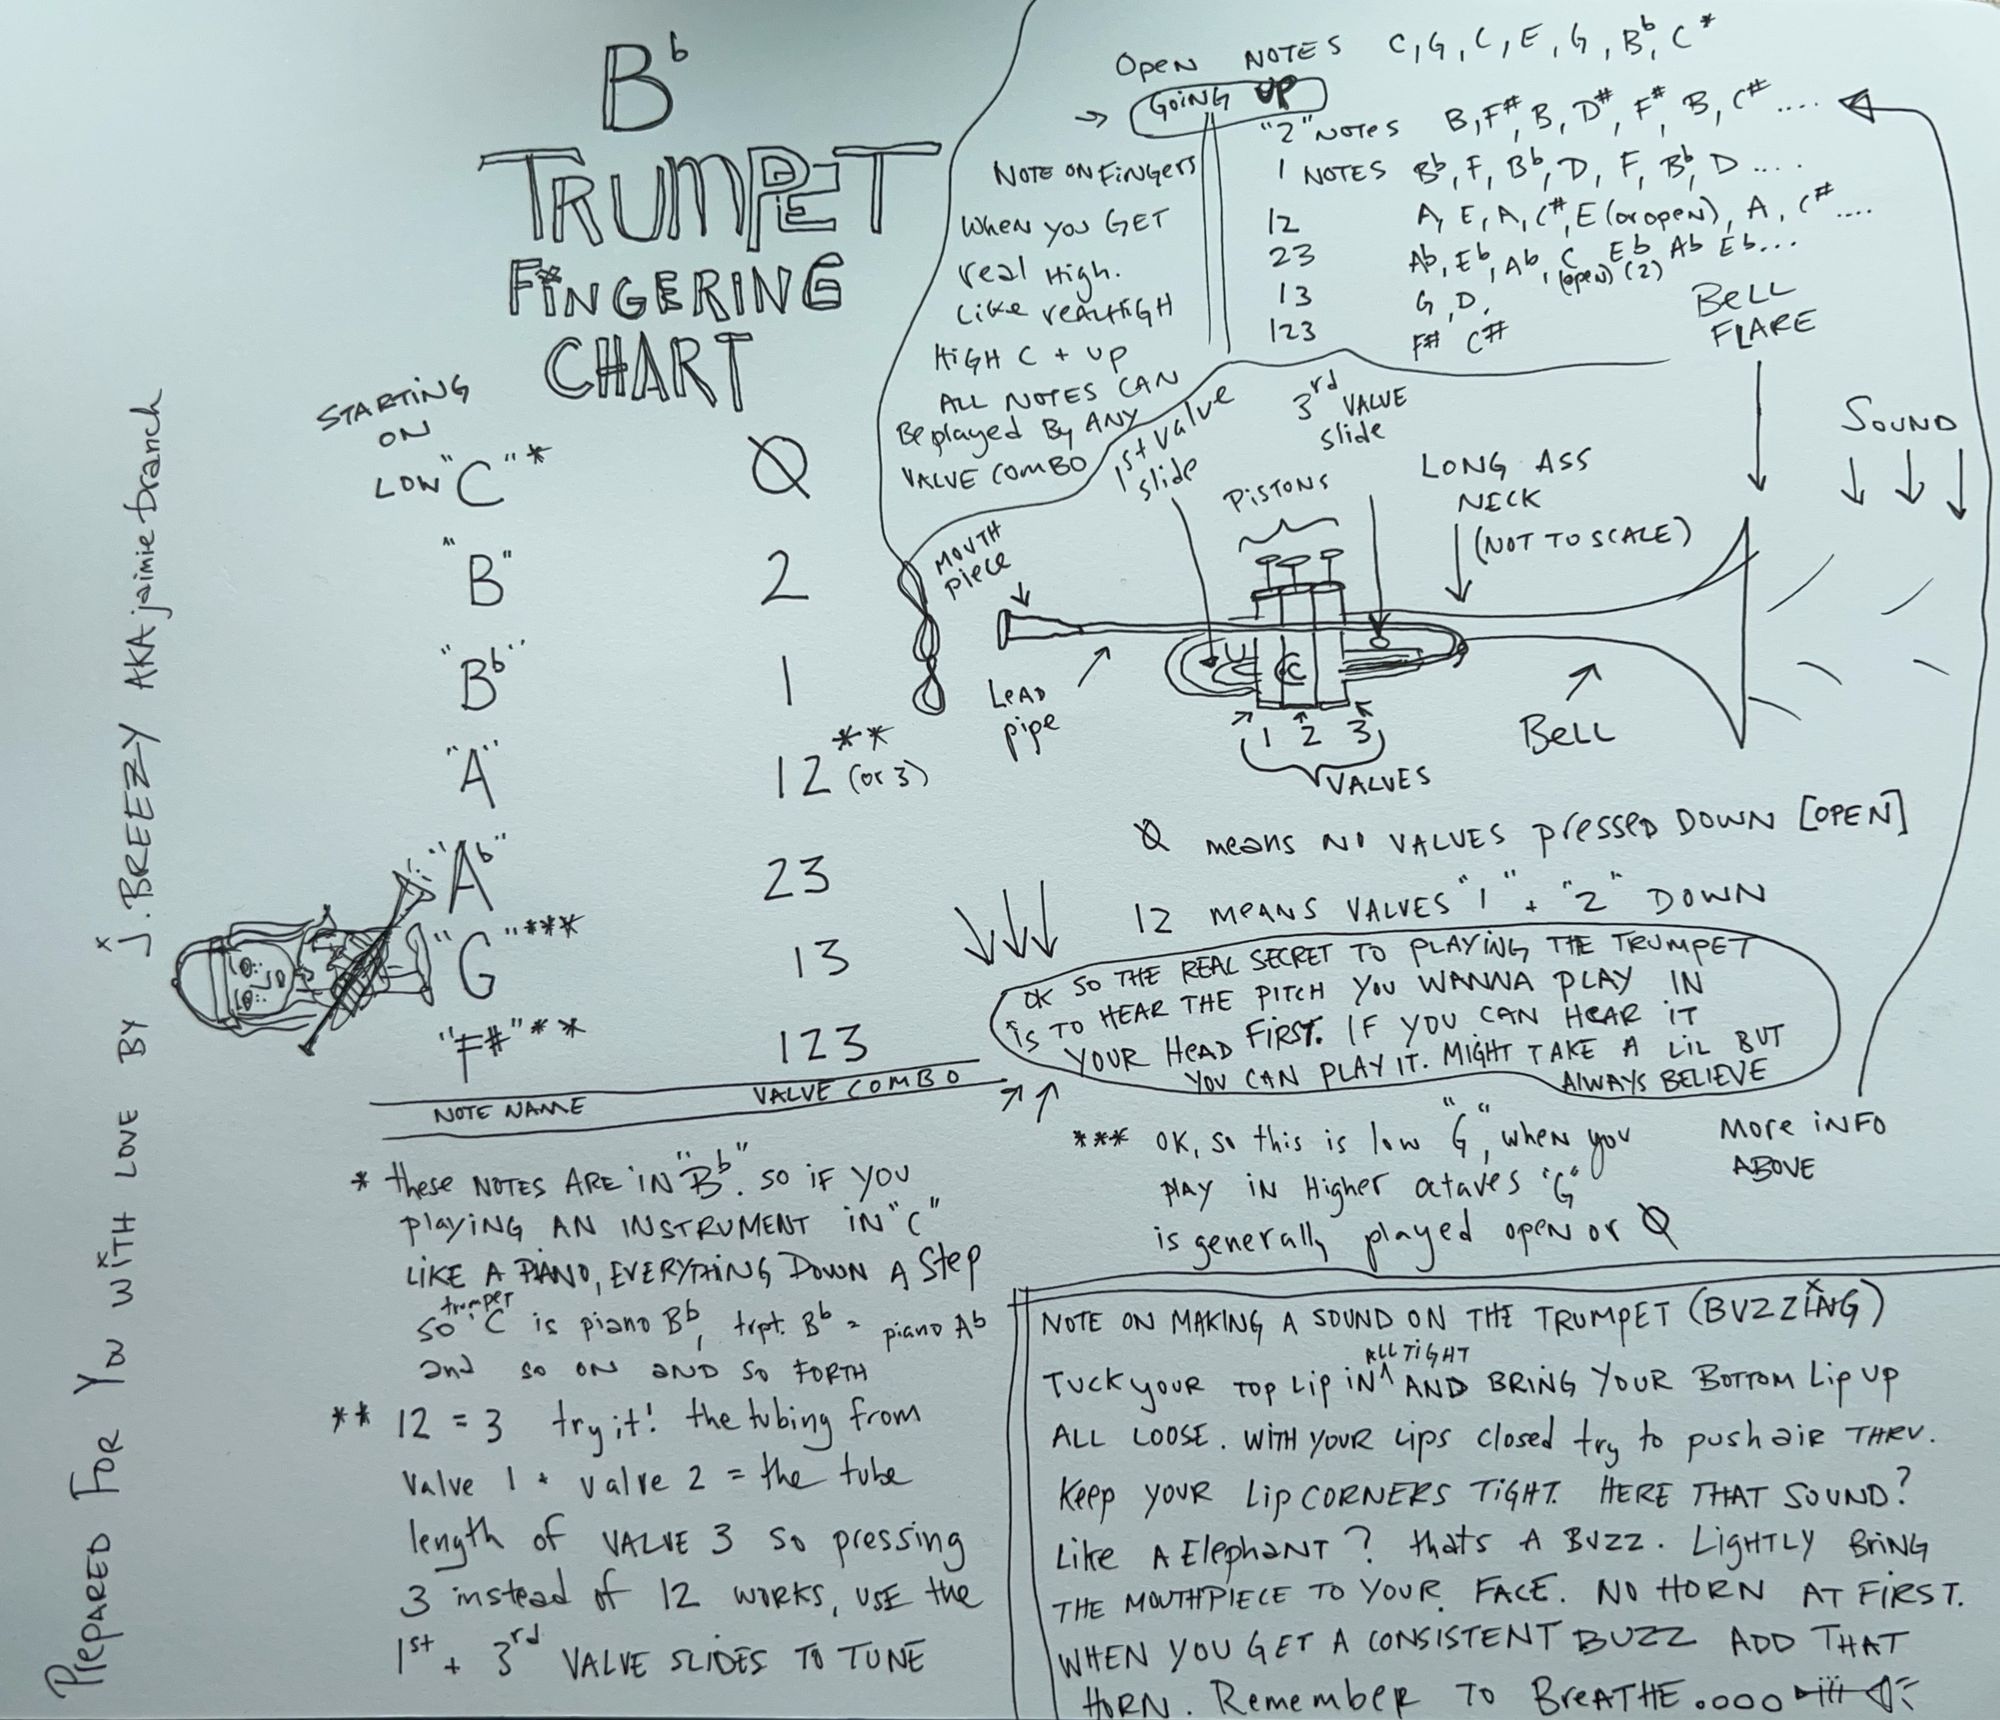 B♭
TRUMPET
FINGERING
CHART
STARTING
ON
LOW "C"* Ø
"B" 2
"B♭" 1
"A" 12** (or 3)
"A♭" 23
"G"*** 13
"F#"** 123
NOTE NAME VALVE COMBO
* these NOTES ARE IN "B♭". SO IF YOU
playing AN INSTRUMENT IN "C"
LIKE A PIANO, EVERYTHING DOWN A STEP
so trumpet "C" is piano B♭, trpt. B♭ = piano A♭
and so ON AND SO FORTH
** 12 = 3 try it! the tubing from
valve 1 + valve 2 = the tube
length of VALVE 3 so pressing
3 instead of 12 WORKS, USE the
1st + 3rd VALVE SLIDES TO TUNE
PREPARED FOR YOU WITH LOVE BY j. BREEZY AKA jaimie branch
Open NOTES C, G, C, E, G, B♭, C*
→ GOING UP
"2" NOTES B, F#, B, D#, F#, B, C# ....
1 NOTES B♭, F, B♭, D, F, B♭, D ....
12 A, E, A, C#, E (or open), A, C# ....
23 A♭, E♭, A♭, C (open) E♭ (2) A♭ E♭...
13 G, D,
123 F# C#
NOTE ON FINGERS
When you GET
real High.
Like real HIGH
HIGH C + up
ALL NOTES CAN
Be played By ANY
VALVE COMBO
1st valve
slide
3rd VALVE
slide
PISTONS
LONG ASS
NECK
(NOT TO SCALE)
BELL
FLARE
SOUND
MOUTH
piece
LEAD
pipe
1 2 3
VALVES
BELL
Ø means NO VALVES pressed DOWN [OPEN]
12 MEANS VALVES "1" + "2" DOWN
OK SO THE REAL SECRET TO PLAYING THE TRUMPET
IS TO HEAR THE PITCH YOU WANNA PLAY IN
YOUR HEAD FIRST. IF YOU CAN HEAR IT
YOU CAN PLAY IT. MIGHT TAKE A LIL BUT
ALWAYS BELIEVE
*** OK, so this is low "G", when you
play in Higher octaves "G"
is generally played open or Ø
More INFO
ABOVE
NOTE ON MAKING A SOUND ON THE TRUMPET (BUZZING)
TUCK your TOP Lip IN ALL TIGHT AND BRING YOUR BOTTOM Lip UP
ALL LOOSE. WITH YOUR Lips closed try to push air THRU.
Keep YOUR Lip CORNERS TIGHT. HERE THAT SOUND?
Like A Elephant? thats A BUZZ. LIGHTLY BRING
THE MOUTHPIECE TO YOUR FACE. NO HORN AT FIRST.
WHEN YOU GET A CONSISTENT BUZZ ADD THAT
HORN. Remember TO BREATHE.oooo